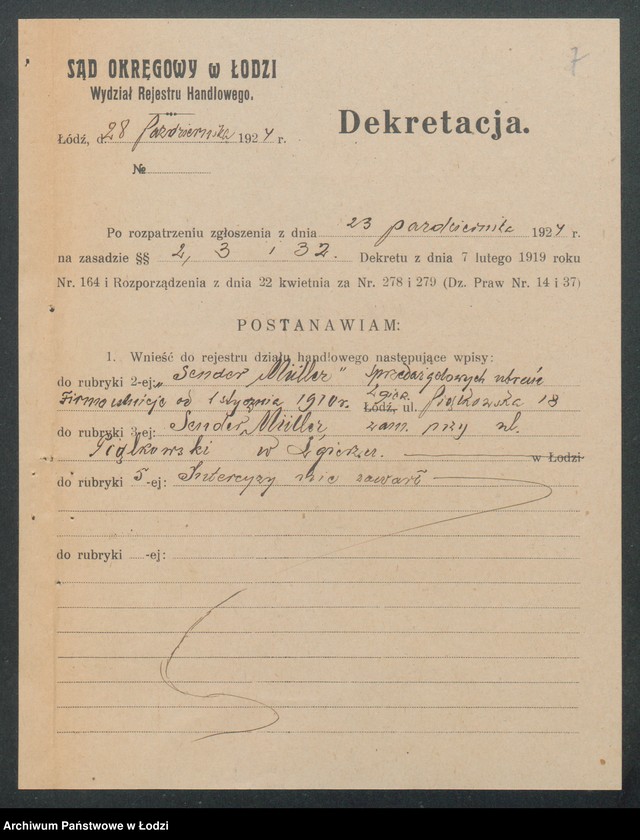 7
SĄD OKRĘGOWY w ŁODZI
Wydział Rejestru Handlowego.
Łódź, d. 28 Października 1924 r.
Dekretacja.
№
Po rozpatrzeniu zgłoszenia z dnia 23 października 1924 r.
na zasadzie §§ 2, 3 i 32. Dekretu z dnia 7 lutego 1919 roku
Nr. 164 i Rozporządzenia z dnia 22 kwietnia za Nr. 278 i 279 (Dz. Praw Nr. 14 i 37)
POSTANAWIAM:
1. Wnieść do rejestru działu handlowego następujące wpisy:
do rubryki 2-ej: „Sender Müller” Sprzedaż gotowych ubrań
Firma istnieje od 1 stycznia 1910 r. Zgierz. Łódź, ul. Piątkowska 18
do rubryki 3-ej: Sender Müller zam. przy ul.
w Zgierzu. w Łodzi
do rubryki 5-ej: Intercyzy nie zawarł
do rubryki -ej:
Archiwum Państwowe w Łodzi